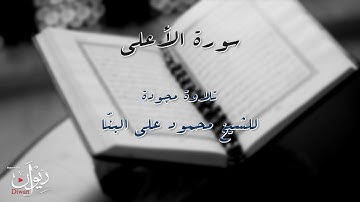 سورة الأعلى
تلاوة مجودة
للشيخ محمود على البنّا
ديوان
Diwan